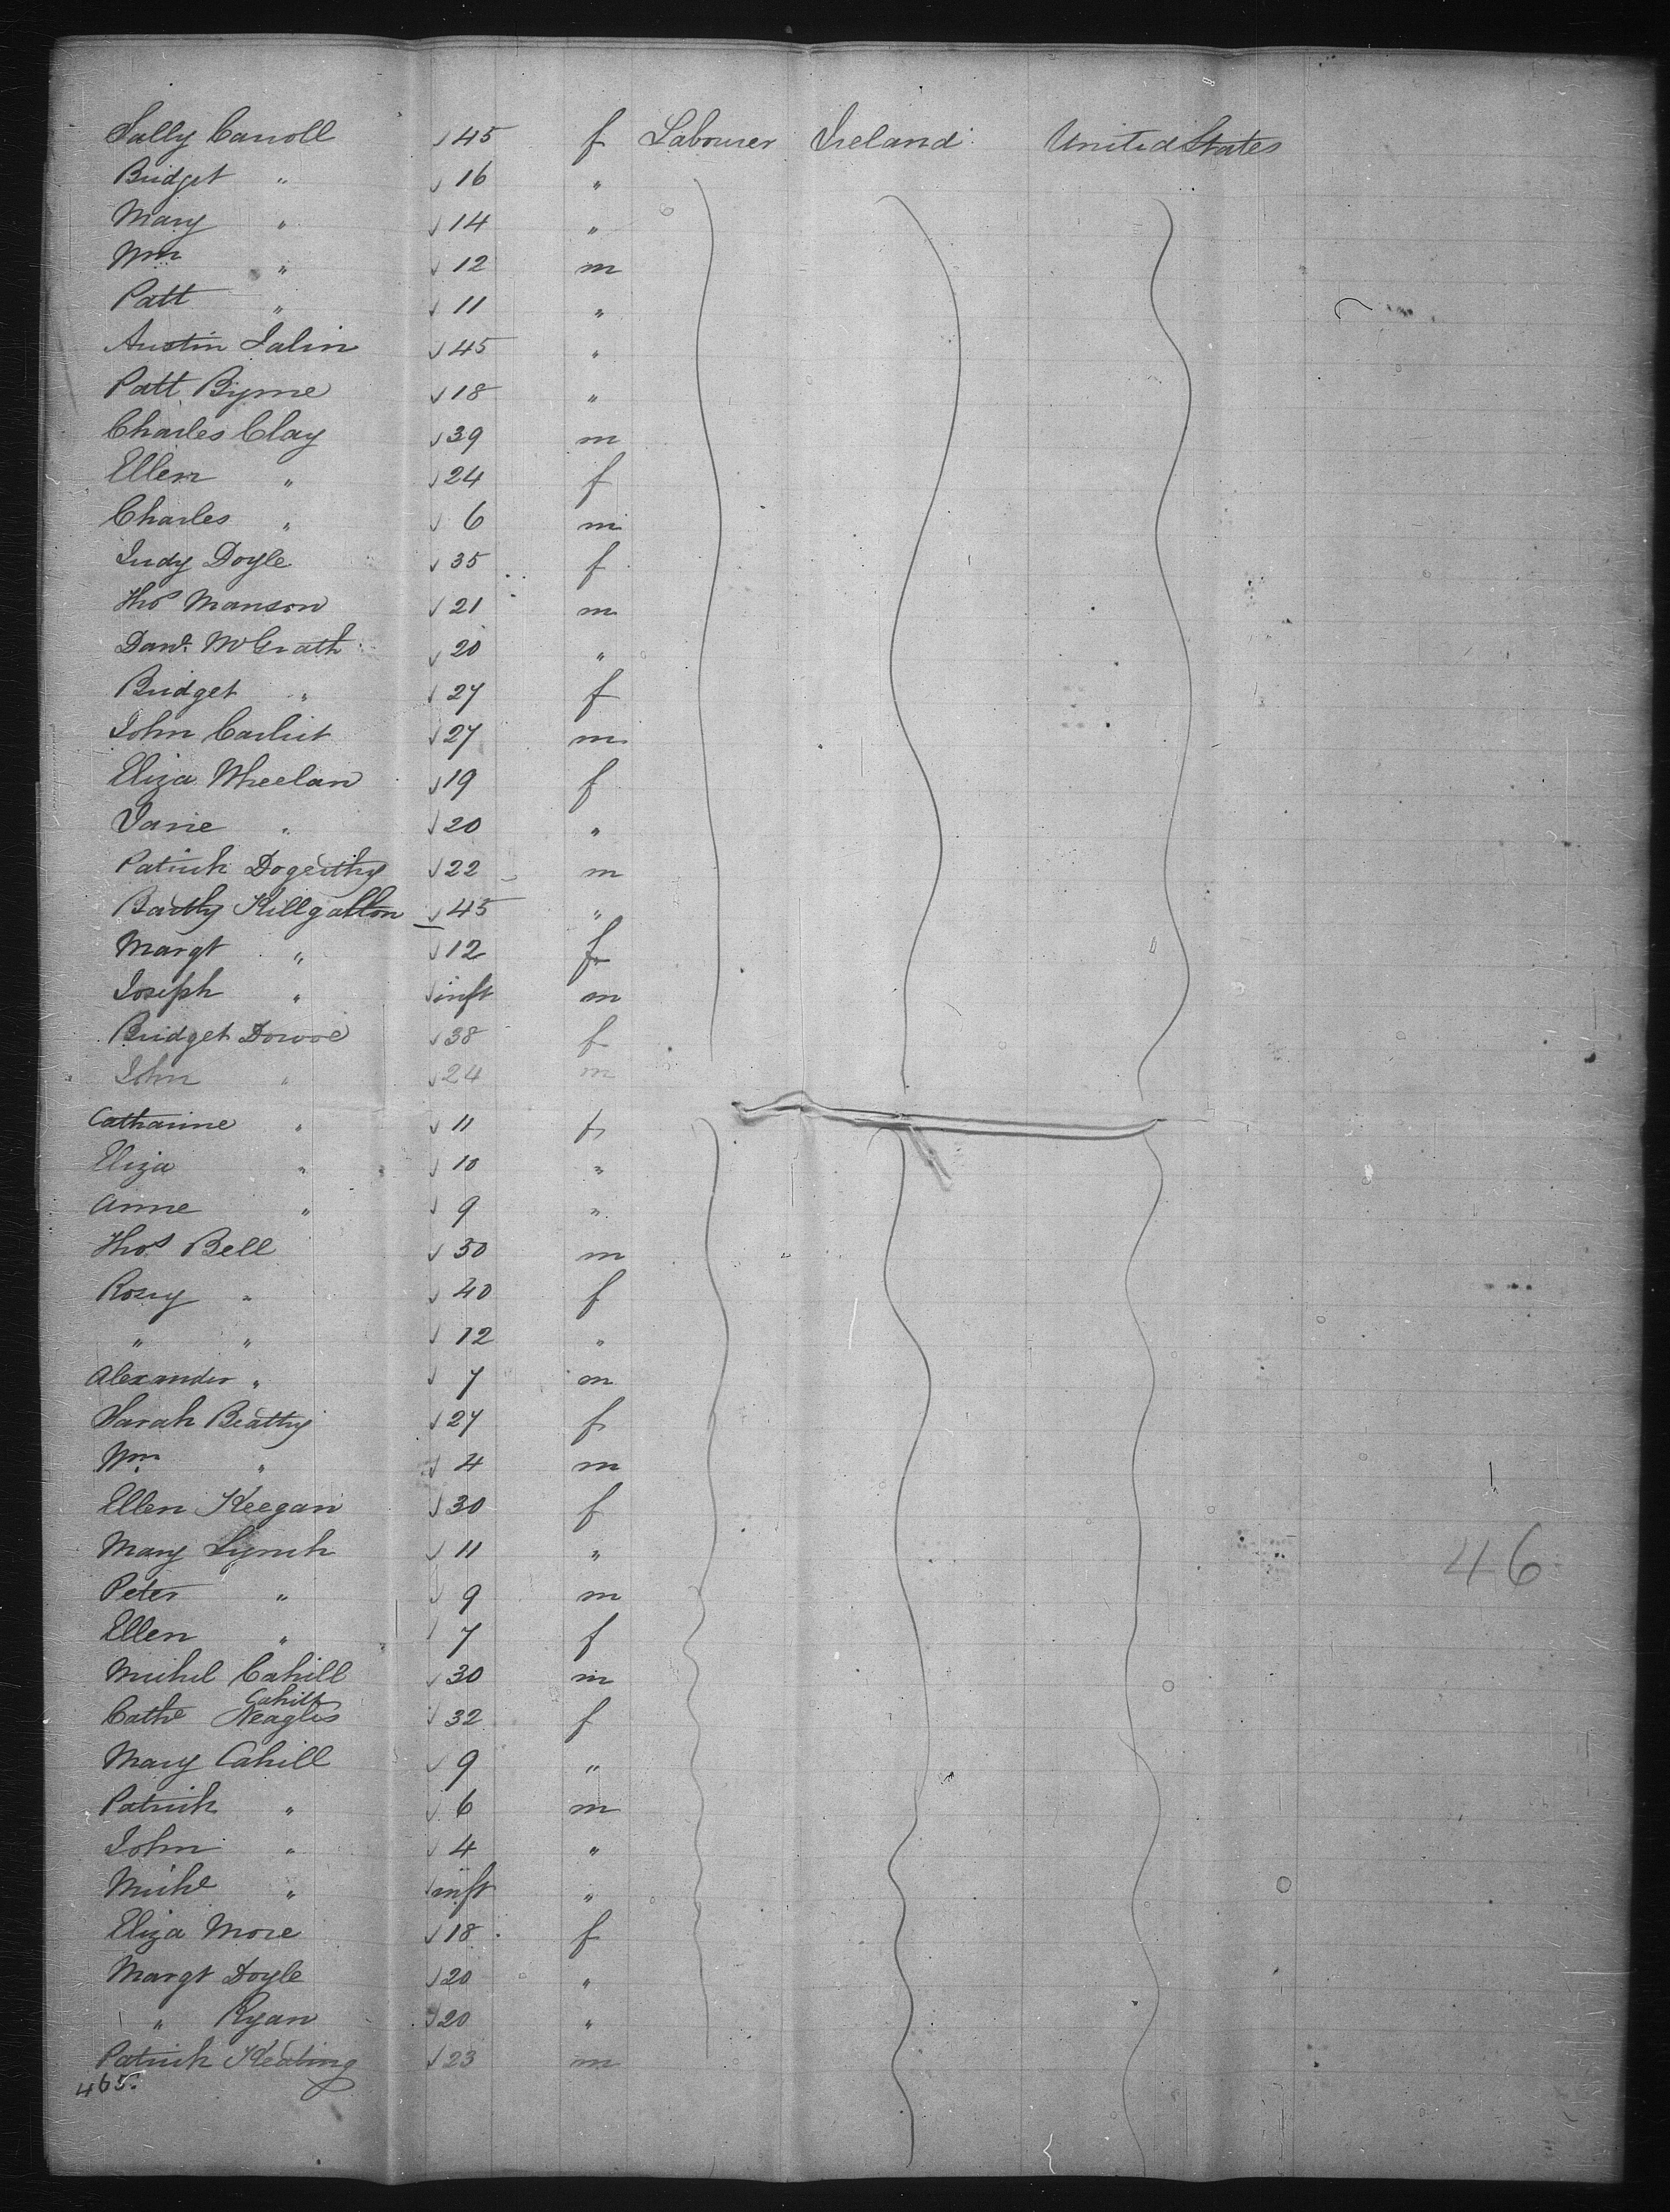 Sally Carroll 45 f Labourer Ireland United States
Bridget " 16 "
Mary " 14 "
Wm " 12 m
Patt " 11 "
Austin 45 "
Patt Byrne 18 "
Charles Clay 39 m
Ellen " 24 f
Charles " 6 m
Judy Doyle 35 f
Thos Manson 21 m
Danl. McGrath 20 "
Bridget " 27 f
John 27 m
Eliza Wheelan 19 f
Jane " 20 "
Patrick Dogerthy 22 m
Bartly Killgallon 45 "
Margt " 12 f
Joseph " inft m
Bridget 38 f
John " 24 m
Catharine " 11 f
Eliza " 10 "
Anne " 9 "
Thos Bell 50 m
Rosey " 40 f
" " 12 "
Alexander " 7 m
Sarah Beatty 27 f
Wm " 4 m
Ellen Keegan 30 f
Mary Lynch 11 "
46
Peter " 9 m
Ellen " 7 f
Michel Cahill 30 m
Cahill
Cathe Neagles 32 f
Mary Cahill 9 "
Patrick " 6 m
John " 4 "
Miche " inft "
Eliza More 18 f
Margt Doyle 20 "
" Ryan 20 "
Patrick Keating 23 m
465.